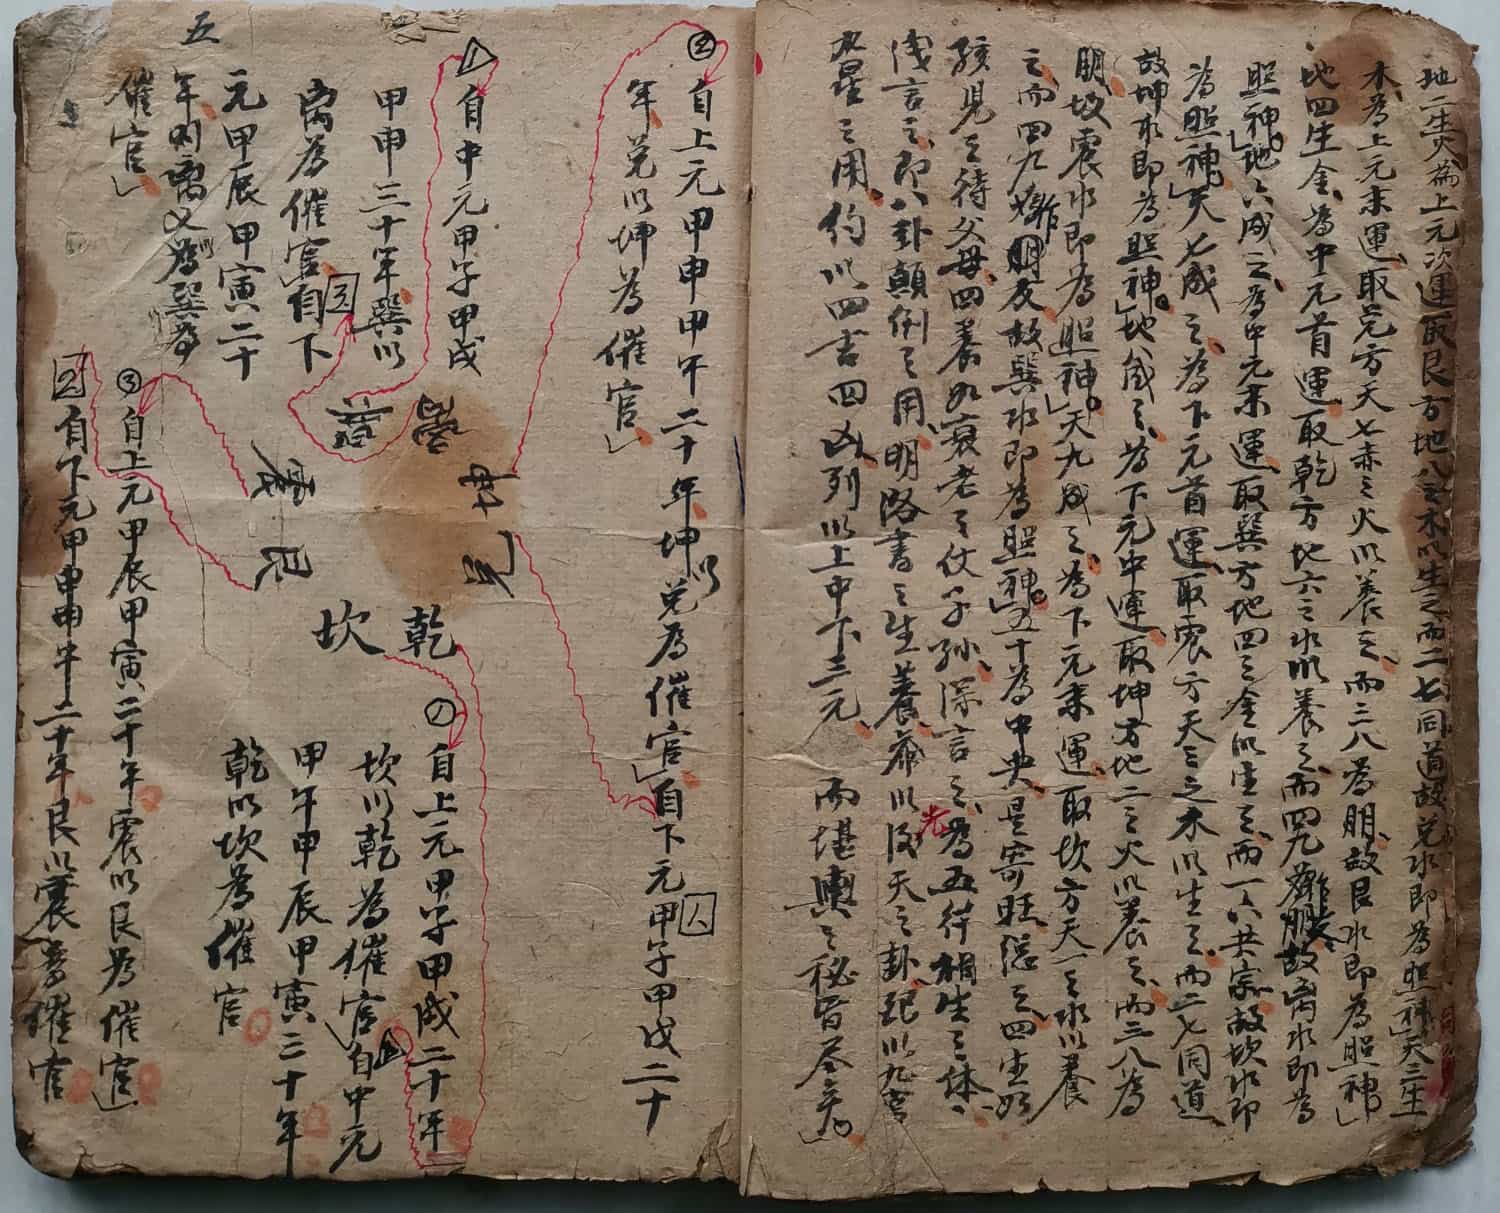 地二生火為上元次運取艮方地八之木以生之而二七同道故兌水即為照神」天三生
木為上元末運取兌方天七赤之火以養之而三八為朋故艮水即為照神」
地四生金為中元首運取乾方地六之水以養之而四九為朋故离水即為
照神」地六成之為中元末運取巽方地四之金以生之而一六共宗故坎水即
為照神」天七成之為下元首運取震方天三之木以生之而二七同道
故坤水即為照神」地八成之為下元中運取坤方地二之火以養之而三八為
朋故震水即為照神」天九成之為下元末運取坎方天一之水以養
之而四九作朋友故巽水即為照神」五十為中央是寄旺總之四生如
孩兒之待父母四養如衰老之仗子孫深言之為五行相生之体
淺言之即八卦顛倒之用明洛書之生養希以後天之卦配以九宮
九星之用約以四吉四凶列以上中下三元而堪輿之秘旨尽矣」
②自上元甲申甲午二十年坤以兌為催官」自下元甲子甲戌二十
年兌以坤為催官」
自中元甲子甲戌
甲申三十年巽以
离為催官」自下
元甲辰甲寅二十
年則离又為巽為
催官」
五
离
巽
坤
兌
震
艮
乾
坎
自上元甲子甲戌二十年
坎以乾為催官」自中元
甲午甲辰甲寅三十年
乾以坎為催官
③自上元甲辰甲寅二十年震以艮為催官」
自下元甲申甲午二十年艮以震為催官